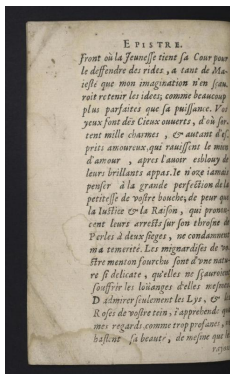 EPISTRE.
Front où la Ieunesse tient sa Cour pour
le deffendre des rides, a tant de Ma-
iesté que mon imagination n'en sçau
roit retenir les idees; comme beaucoup
plus parfaites que sa puissance. Vos
yeux sont des Cieux ouuerts, d'où sor-
tent mille charmes, & autant d'es-
prits amoureux qui rauissent le mien
d'amour, apres l'auoir esblouy de
leurs brillants appas. Ie n'oze iamais
penser à la grande perfection de la
petitesse de vostre bouche, de peur que
la Iustice & la Raison, qui pronon-
cent leurs arrests sur son throsne de
Perles à deux sieges, ne condamnent
ma temerité. Les mignardises de vo-
stre menton fourchu sont d'vne natu-
re si delicate, qu'elles ne sçauroient
souffrir les loüanges d'elles mesmes
D'admirer seulement les Lys, & les
Roses de vostre tein, i'apprehende que
mes regards comme trop profanes, ne
haslent sa beauté, de mesme que les
rayons